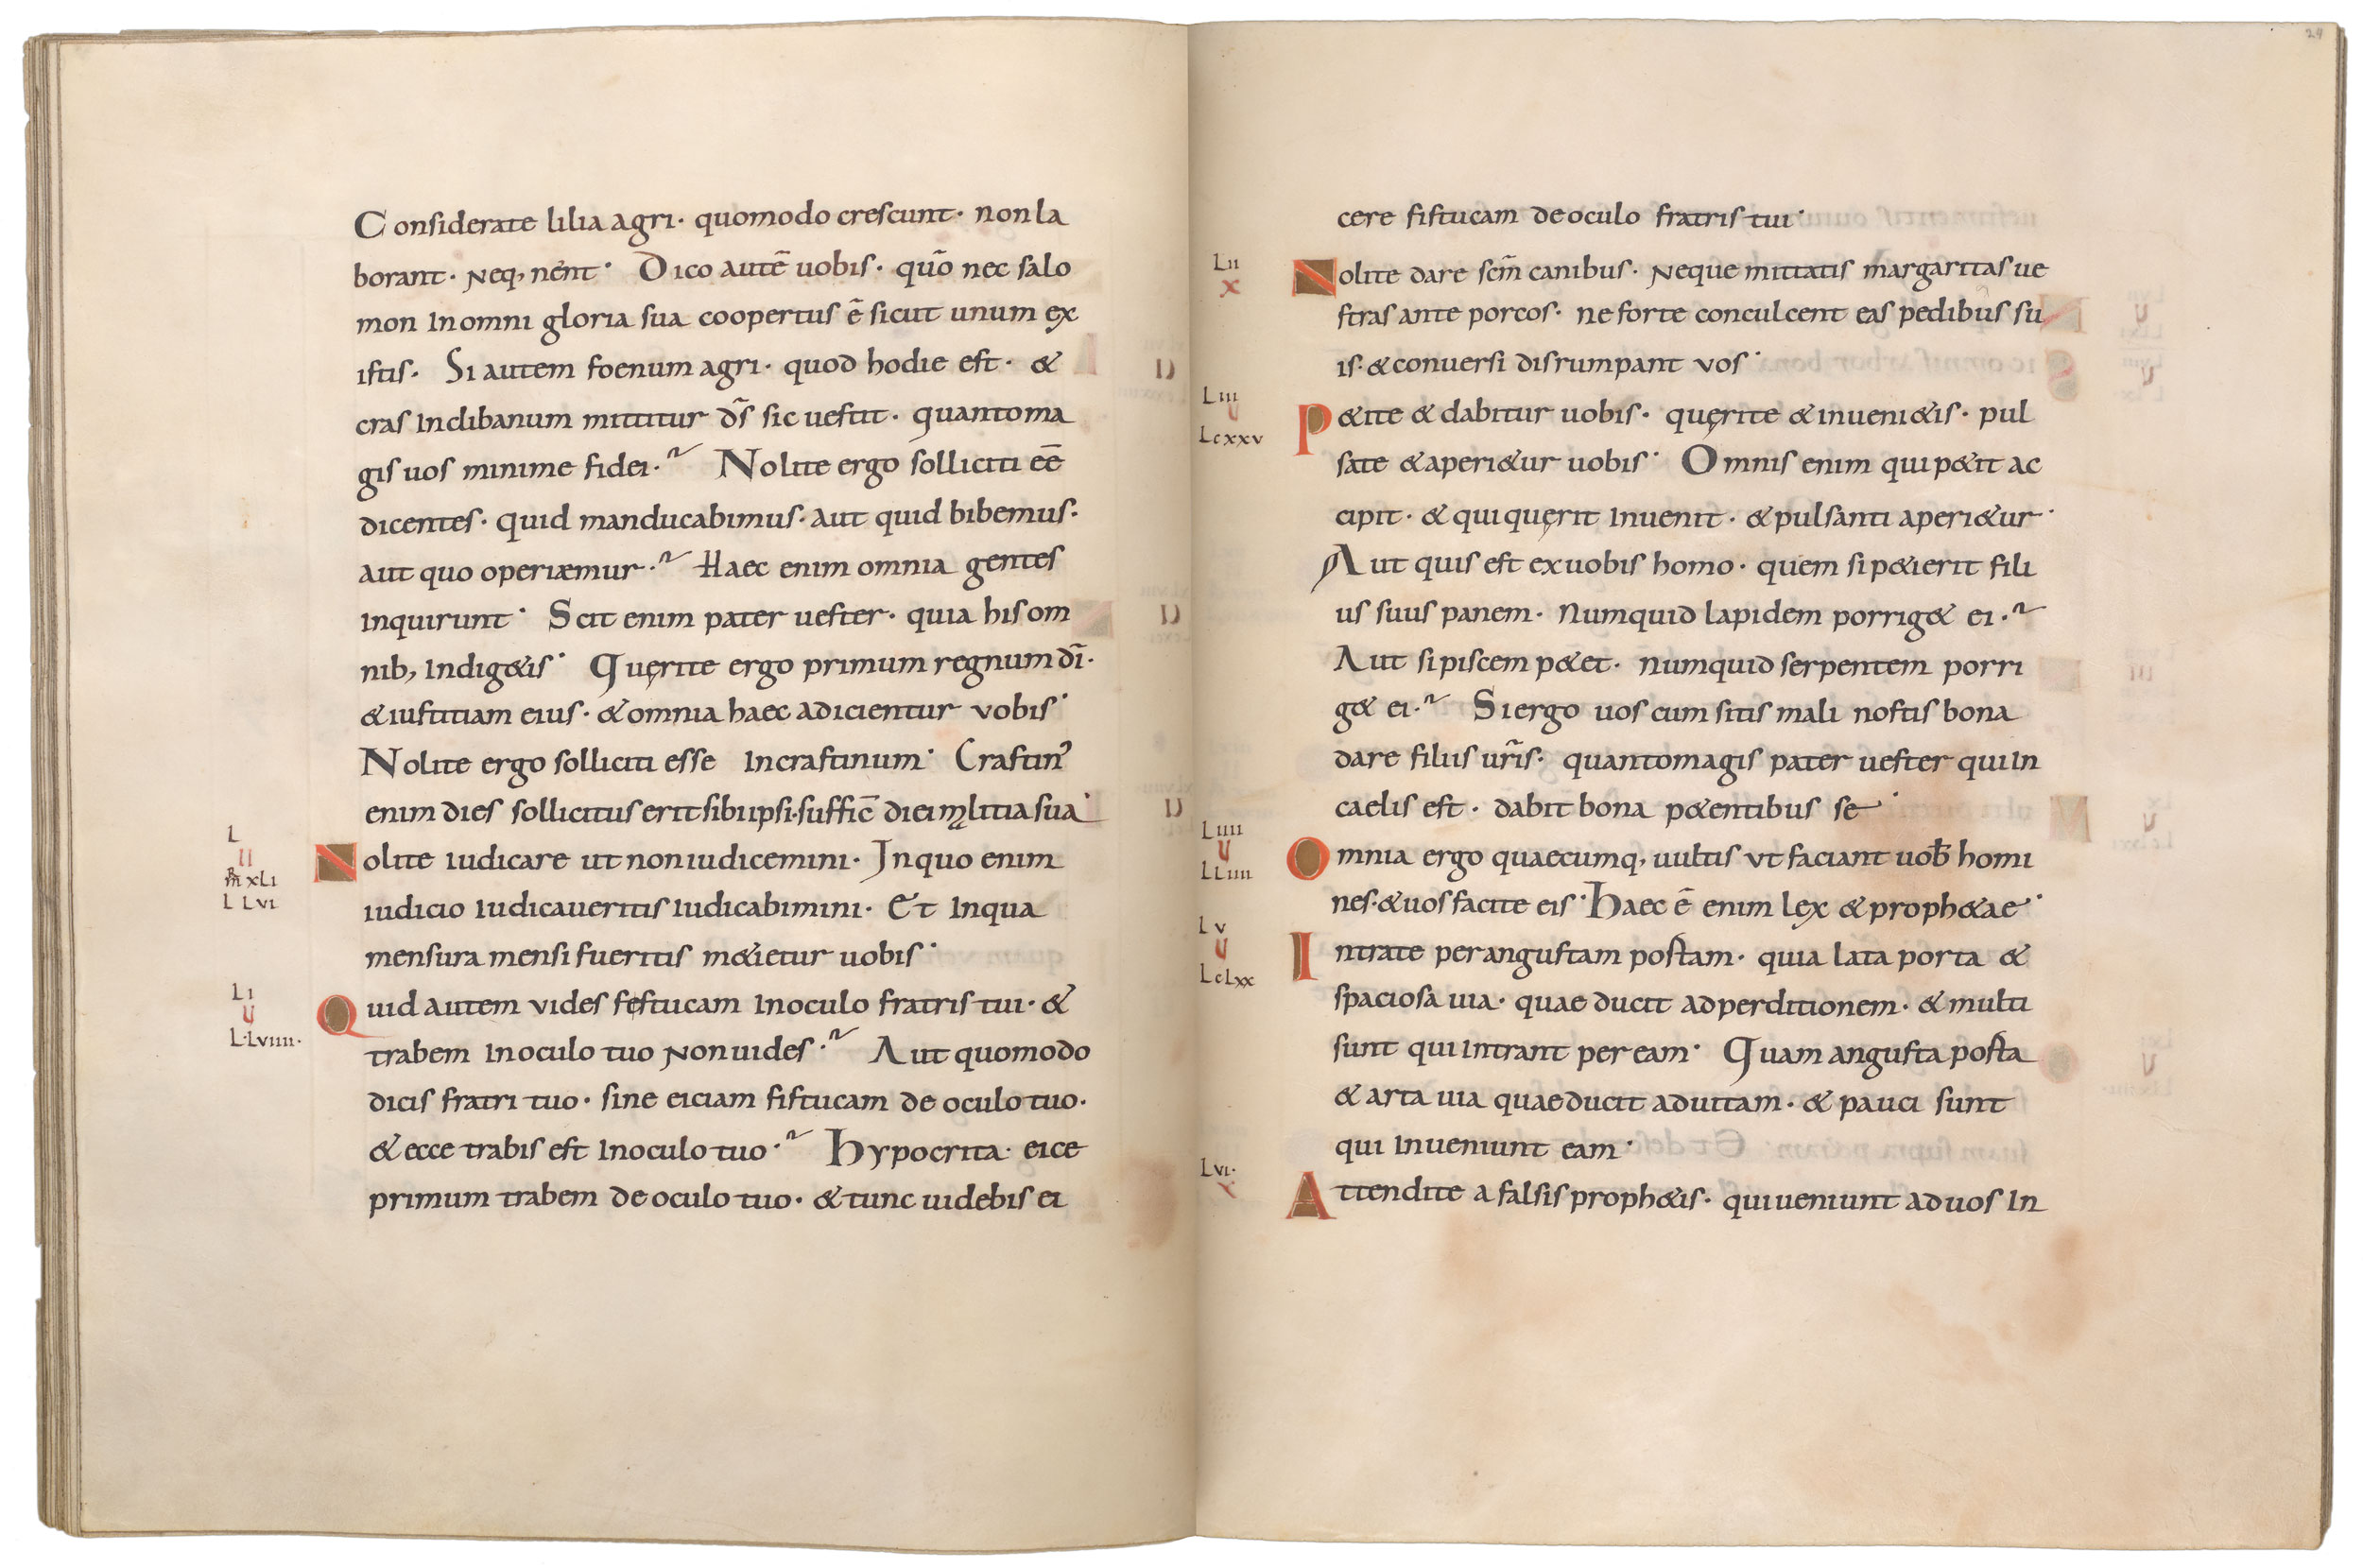 Considerate lilia agri· quomodo crescunt· non la
borant· neq, nent· Dico autē uobis· quō nec salo
mon in omni gloria sua coopertus ē sicut unum ex
istis· Si autem foenum agri· quod hodie est· &
cras in clibanum mittitur d̄s sic uestit· quanto ma
gis uos minime fidei· Nolite ergo solliciti eē
dicentes· quid manducabimus· aut quid bibemus·
aut quo operiæmur· Haec enim omnia gentes
inquirunt· Scit enim pater uester· quia his om
nib, indig&is· Quęrite ergo primum regnum dī·
& iustitiam eius· & omnia haec adicientur vobis·
Nolite ergo solliciti esse in crastinum· Crastin᾿
enim dies sollicitus erit sibi ipsi· suffic̄ diei malitia sua·
L
II
xLI
L LVI
Nolite iudicare ut non iudicemini· In quo enim
iudicio iudicaueritis iudicabimini· Et in qua
mensura mensi fueritis m&ietur uobis·
LI
U
L·LVIIII·
Quid autem vides festucam in oculo fratris tui· &
trabem in oculo tuo non uides· Aut quomodo
dicis fratri tuo· sine eiciam fistucam de oculo tuo·
& ecce trabis est in oculo tuo· Hypocrita· eice
primum trabem de oculo tuo· & tunc uidebis ei
24
cere fistucam de oculo fratris tui·
LII
X
Nolite dare scm̄ canibus· Neque mittatis margaritas ue
stras ante porcos· ne forte conculcent eas pedibus su
is· & conuersi disrumpant vos·
LIII
U
LCXXV
P&ite & dabitur uobis· quęrite & inueni&is· pul
sate & aperi&ur uobis· Omnis enim qui p&it ac
cipit· & qui quęrit inuenit· & pulsanti aperi&ur·
Aut quis est ex uobis homo· quem si p&ierit fili
us suus panem· Numquid lapidem porrig& ei·
Aut si piscem p&et· numquid serpentem porri
g& ei· Si ergo uos cum sitis mali nostis bona
dare filiis ur̄is· quanto magis pater uester qui in
caelis est· dabit bona p&entibus se·
LIIII
U
LLIIII
Omnia ergo quaecumq, uultis vt faciant uob̄ homi
nes· & uos facite eis· Haec ē enim lex & proph&ae·
LV
U
LCLXX
Intrate per angustam postam· quia lata porta &
spaciosa uia· quae ducit ad perditionem· & multi
sunt qui intrant per eam· Quam angusta posta
& arta uia quae ducit ad uitam· & pauci sunt
qui inueniunt eam·
LVI·
X
Attendite a falsis proph&is· qui ueniunt ad uos in